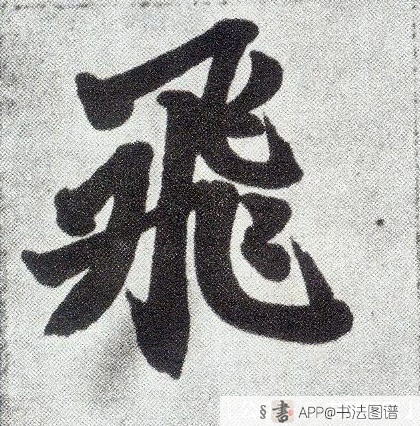 飛
§書 APP@书法图谱